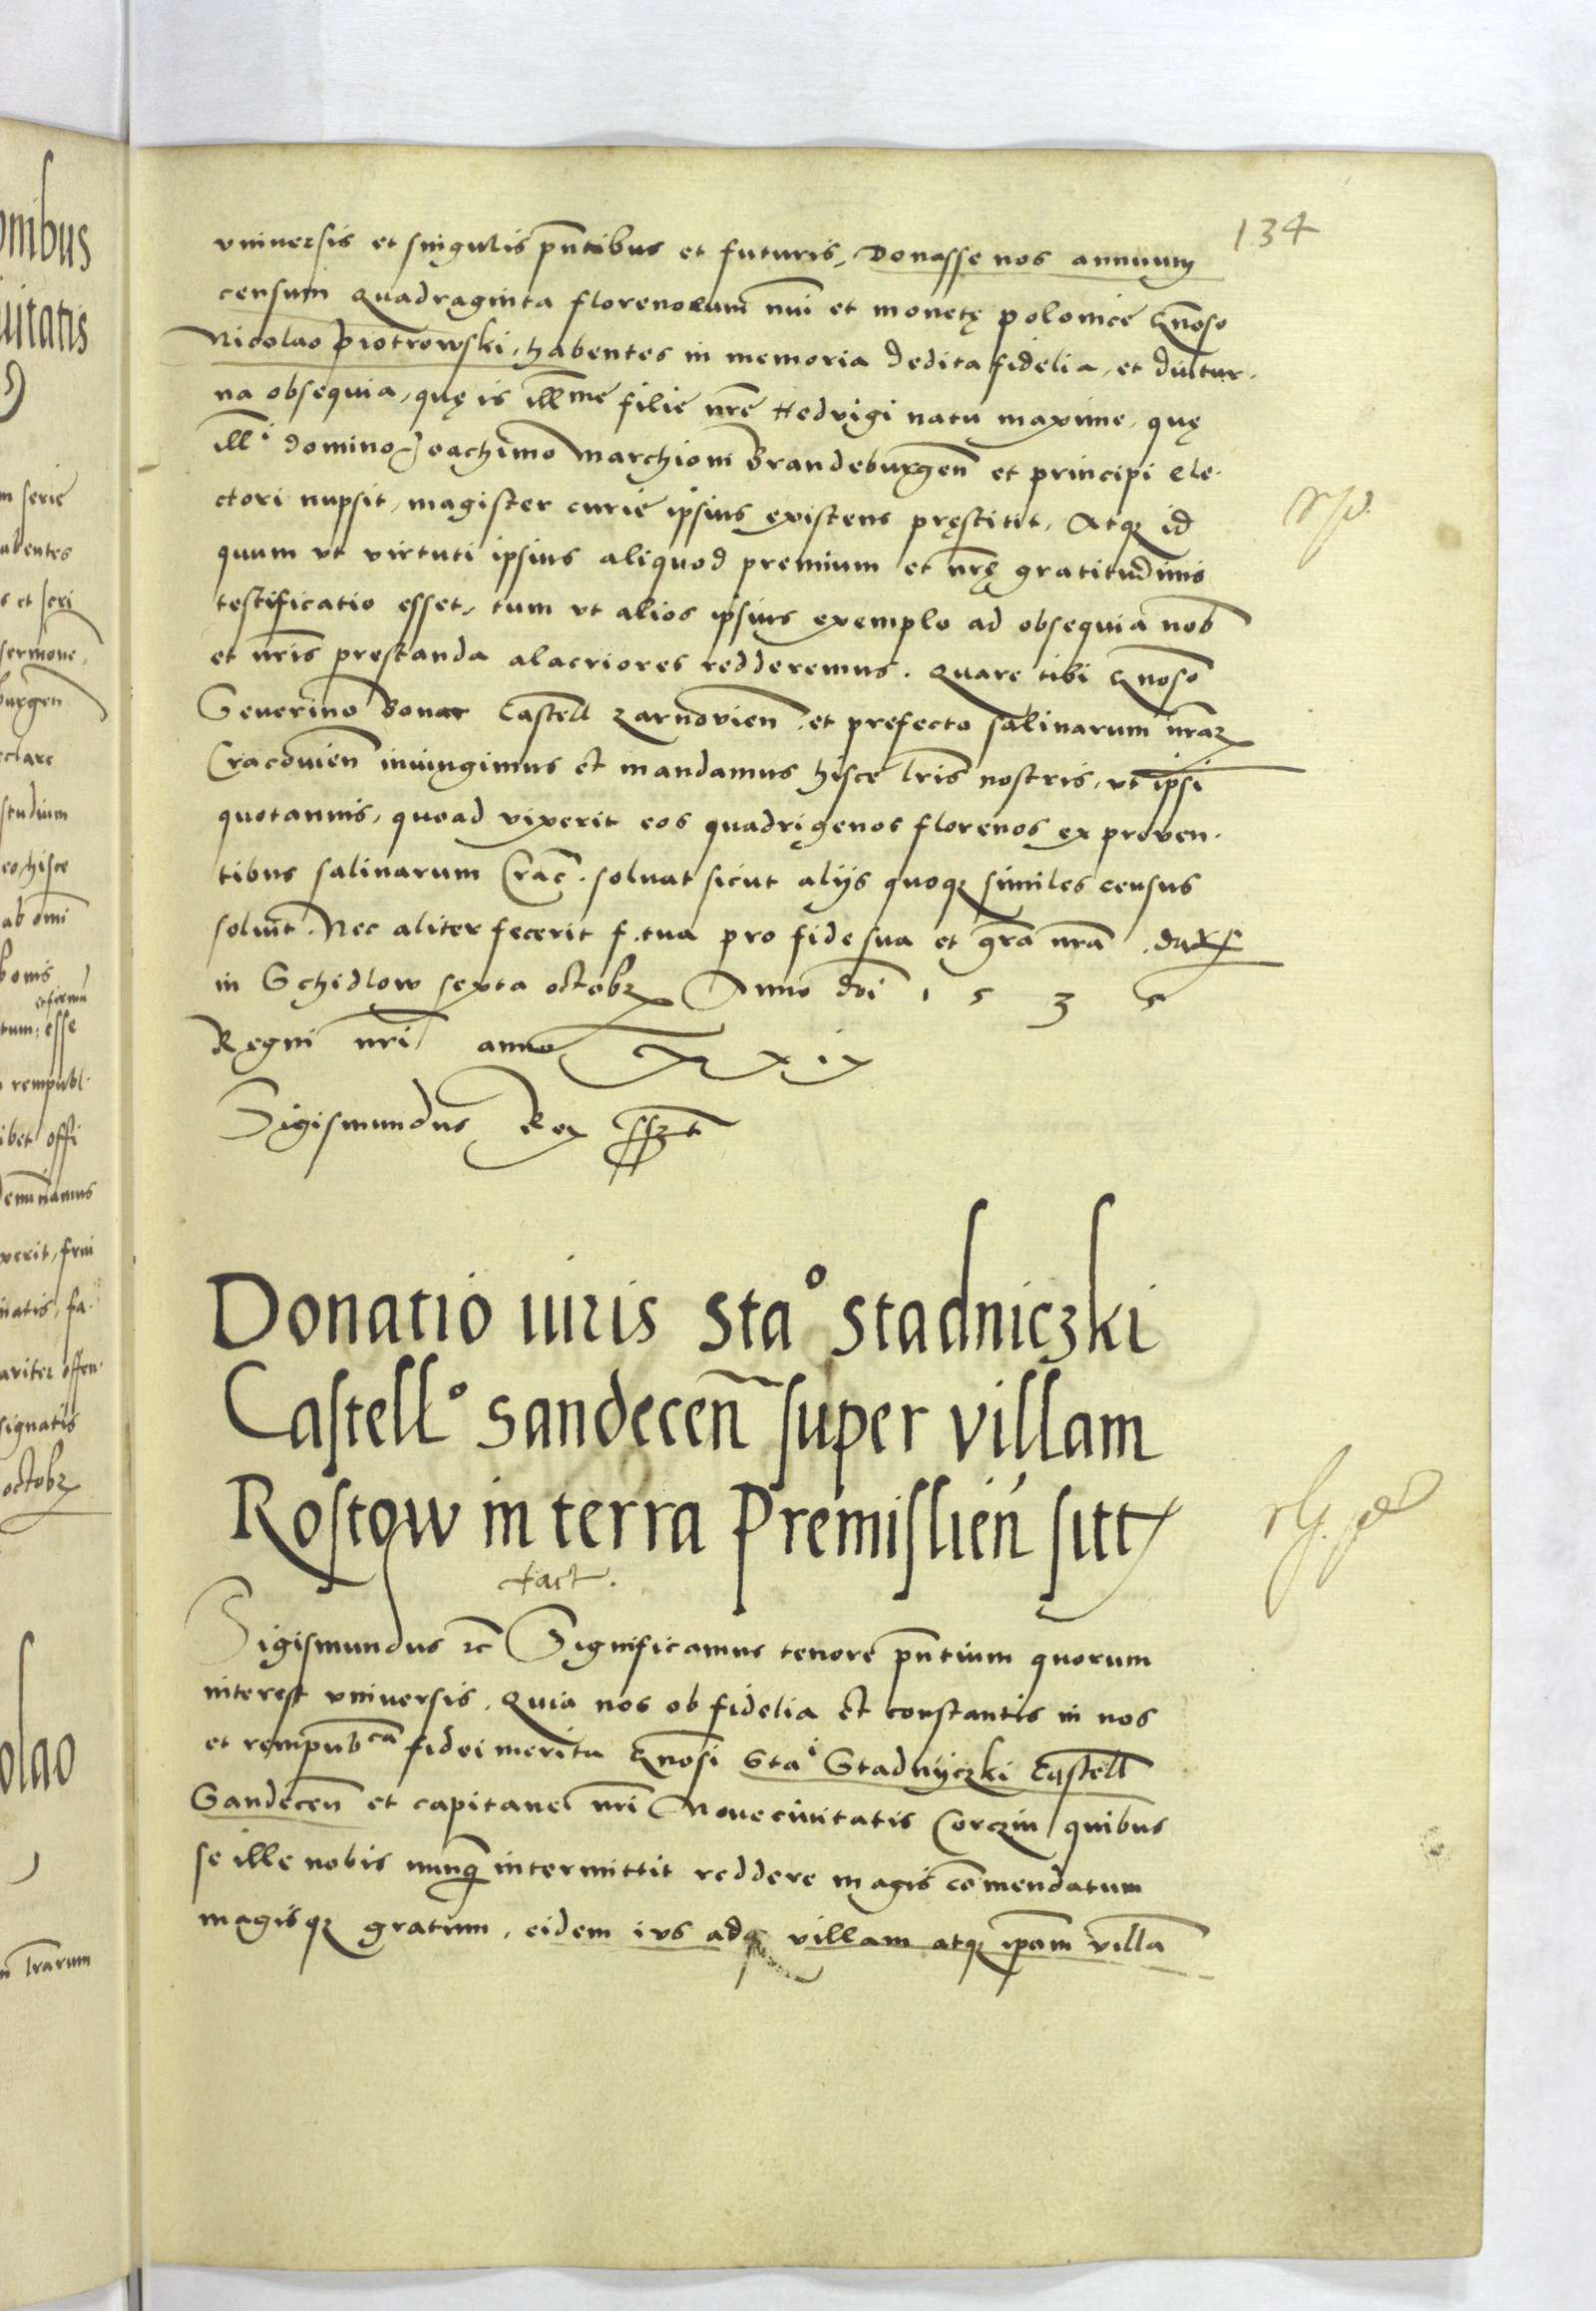 134
vniuersis et singulis pn̄tibus et futuris, Donasse nos annuum
censum Quadraginta florenorum nūi et monetę polonice Gn̄oso
Nicolao Piotrowski, habentes in memoria dedita fidelia, et diutur-
na obsequia, quę is illme filie nr̄e Hedvigi natu maxime, quę
illi domino Joachimo Marchioni Brandeburgen̄ et principi ele-
ctori nupsit, magister curie ipsius existens pręstitit, Atqȝ id
quum vt virtuti ipsius aliquod premium et nr̄ę gratitudinis
testificatio esset, tum vt alios ipsius exemplo ad obsequia nob̄
et nr̄is prestanda alacriores redderemus. Quare tibi Gn̄oso
Seuerino Boner Castell̄ Zarnovien̄ et prefecto salinarum nr̄aꝝ
Cracouien̄ iniungimus et mandamus hisce lr̄is nostris, vt ipsi
quotannis, quoad vixerit eos quadrigenos florenos ex proven-
tibus salinarum Crac̄. soluat sicut alijs quoqȝ similes census
soluit. Nec aliter fecerit f. tua pro fide sua et gr̄a nr̄a. Datꝭ
in Schidlow sexta octobꝝ Anno dn̄i 1 5 3 5
Regni nr̄i anno XXIX
Sigismundus Rex sszt
Donatio iuris Stao Stadniczki
Castello Sandecen̄ super villam
Rostow in terra Premislien̄ sitt
fact.
Sigismundus ꝛc Significamus tenore pn̄tium quorum
interest vniuersis. Quia nos ob fidelia et constantis in nos
et rempub̄ca fidei merita Gn̄osi Stai Stadnyczki Castell̄
Sandecen̄ et capitanei nr̄i Nouecivitatis Corczin quibus
se ille nobis nunq̄ intermittit reddere magis com̄endatum
magisqȝ gratum, eidem ius ad villam atqȝ ip̄am villā